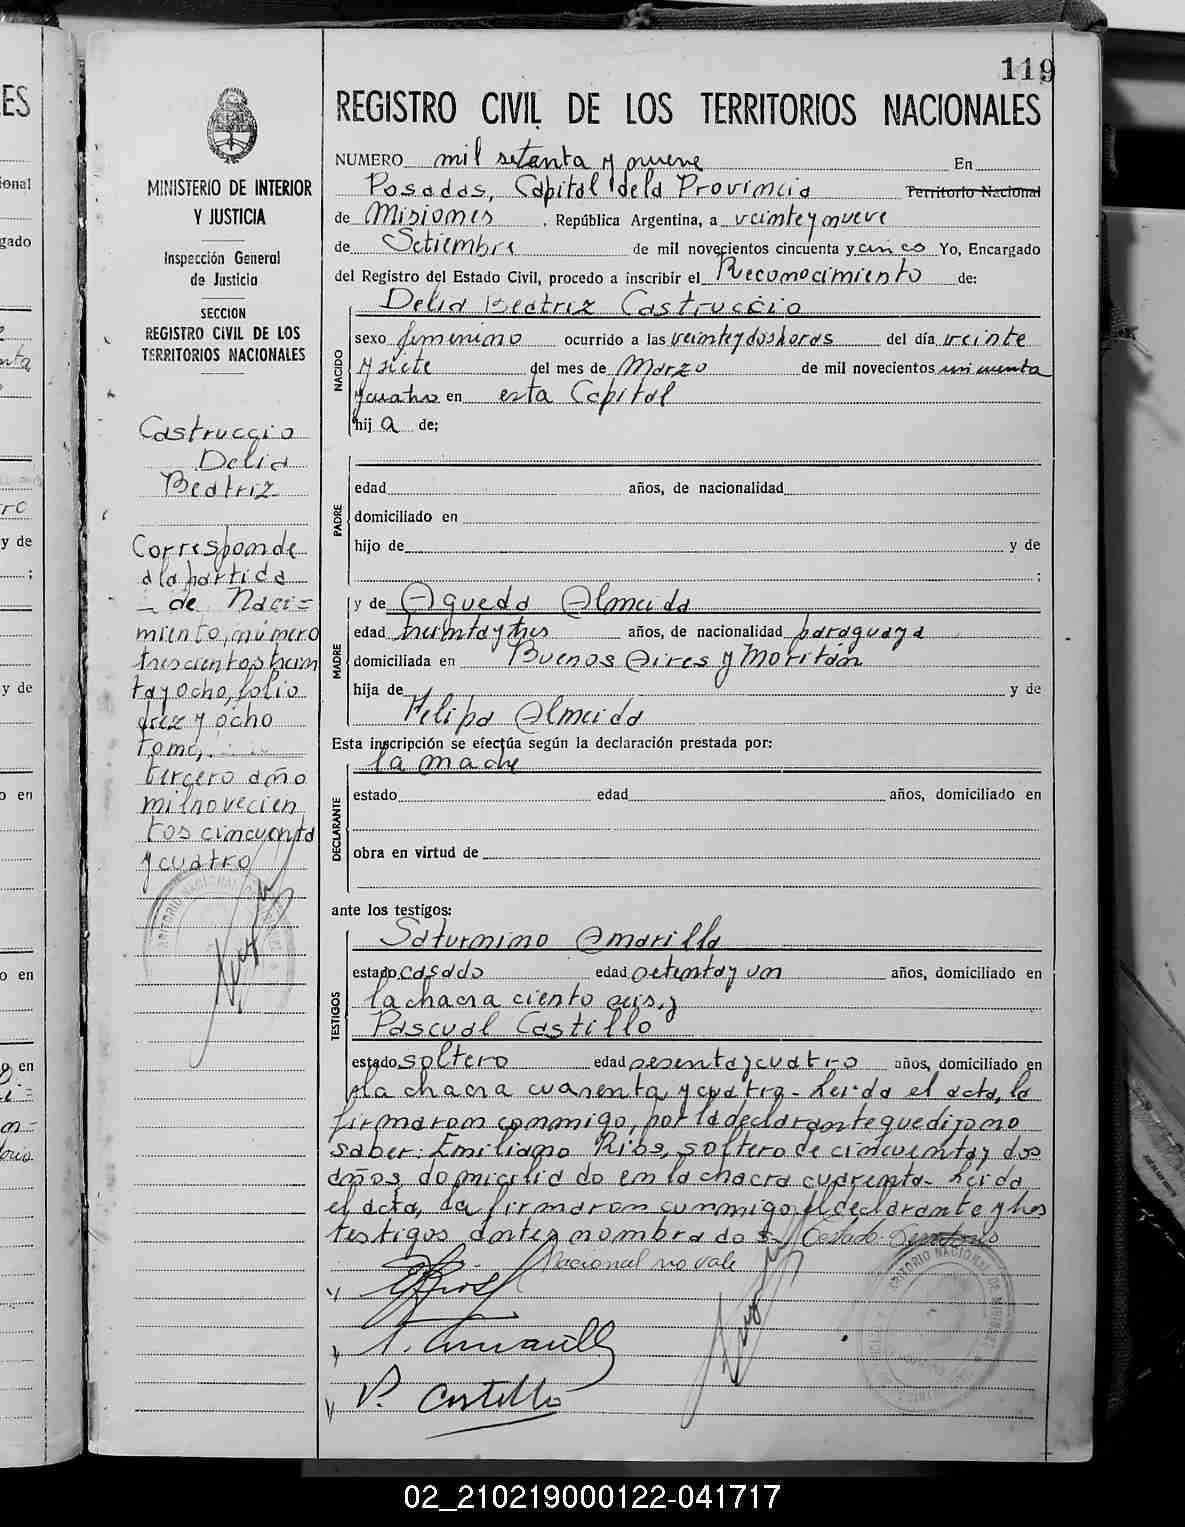 119
REGISTRO CIVIL DE LOS TERRITORIOS NACIONALES
NUMERO mil setenta y nueve En
Posadas, Capital de la Provincia Territorio Nacional
de Misiones, República Argentina, a veinte y nueve
de Setiembre de mil novecientos cincuenta y cinco Yo, Encargado
del Registro del Estado Civil, procedo a inscribir el Reconocimiento de:
Delia Beatriz Castruccio
NACIDO
sexo femenino ocurrido a las veinte y dos horas del día veinte
y siete del mes de Marzo de mil novecientos cincuenta
y cuatro en esta Capital
hij a de;
PADRE
edad años, de nacionalidad
domiciliado en
hijo de y de
;
MADRE
y de Agueda Almeida
edad treinta y tres años, de nacionalidad paraguaya
domiciliada en Buenos Aires y Moritán
hija de y de
Felipa Almeida
Esta inscripción se efectúa según la declaración prestada por:
la madre
DECLARANTE
estado edad años, domiciliado en
obra en virtud de
ante los testigos:
TESTIGOS
Saturnino Amarilla
estado casado edad setenta y un años, domiciliado en
la chacra ciento seis, y
Pascual Castillo
estado soltero edad sesenta y cuatro años, domiciliado en
la chacra cuarenta y cuatro - Leida el acta, la
firmaron conmigo, por la declarante que dijo no
saber: Emiliano Rios, soltero de cincuenta y dos
años, domiciliado en la chacra cuarenta - Leida
el acta, la firmaron conmigo, el declarante y los
testigos antes nombrados - Testado: Territorio
Nacional no vale
P. Castillo
MINISTERIO DE INTERIOR
Y JUSTICIA
Inspección General
de Justicia
SECCION
REGISTRO CIVIL DE LOS
TERRITORIOS NACIONALES
Castruccio
Delia
Beatriz
Corresponde
a la partida
de Naci=
miento, número
trescientos trein
ta y ocho, folio
diez y ocho
tomo,
tercero año
mil novecien
tos cincuenta
y cuatro
02_210219000122-041717